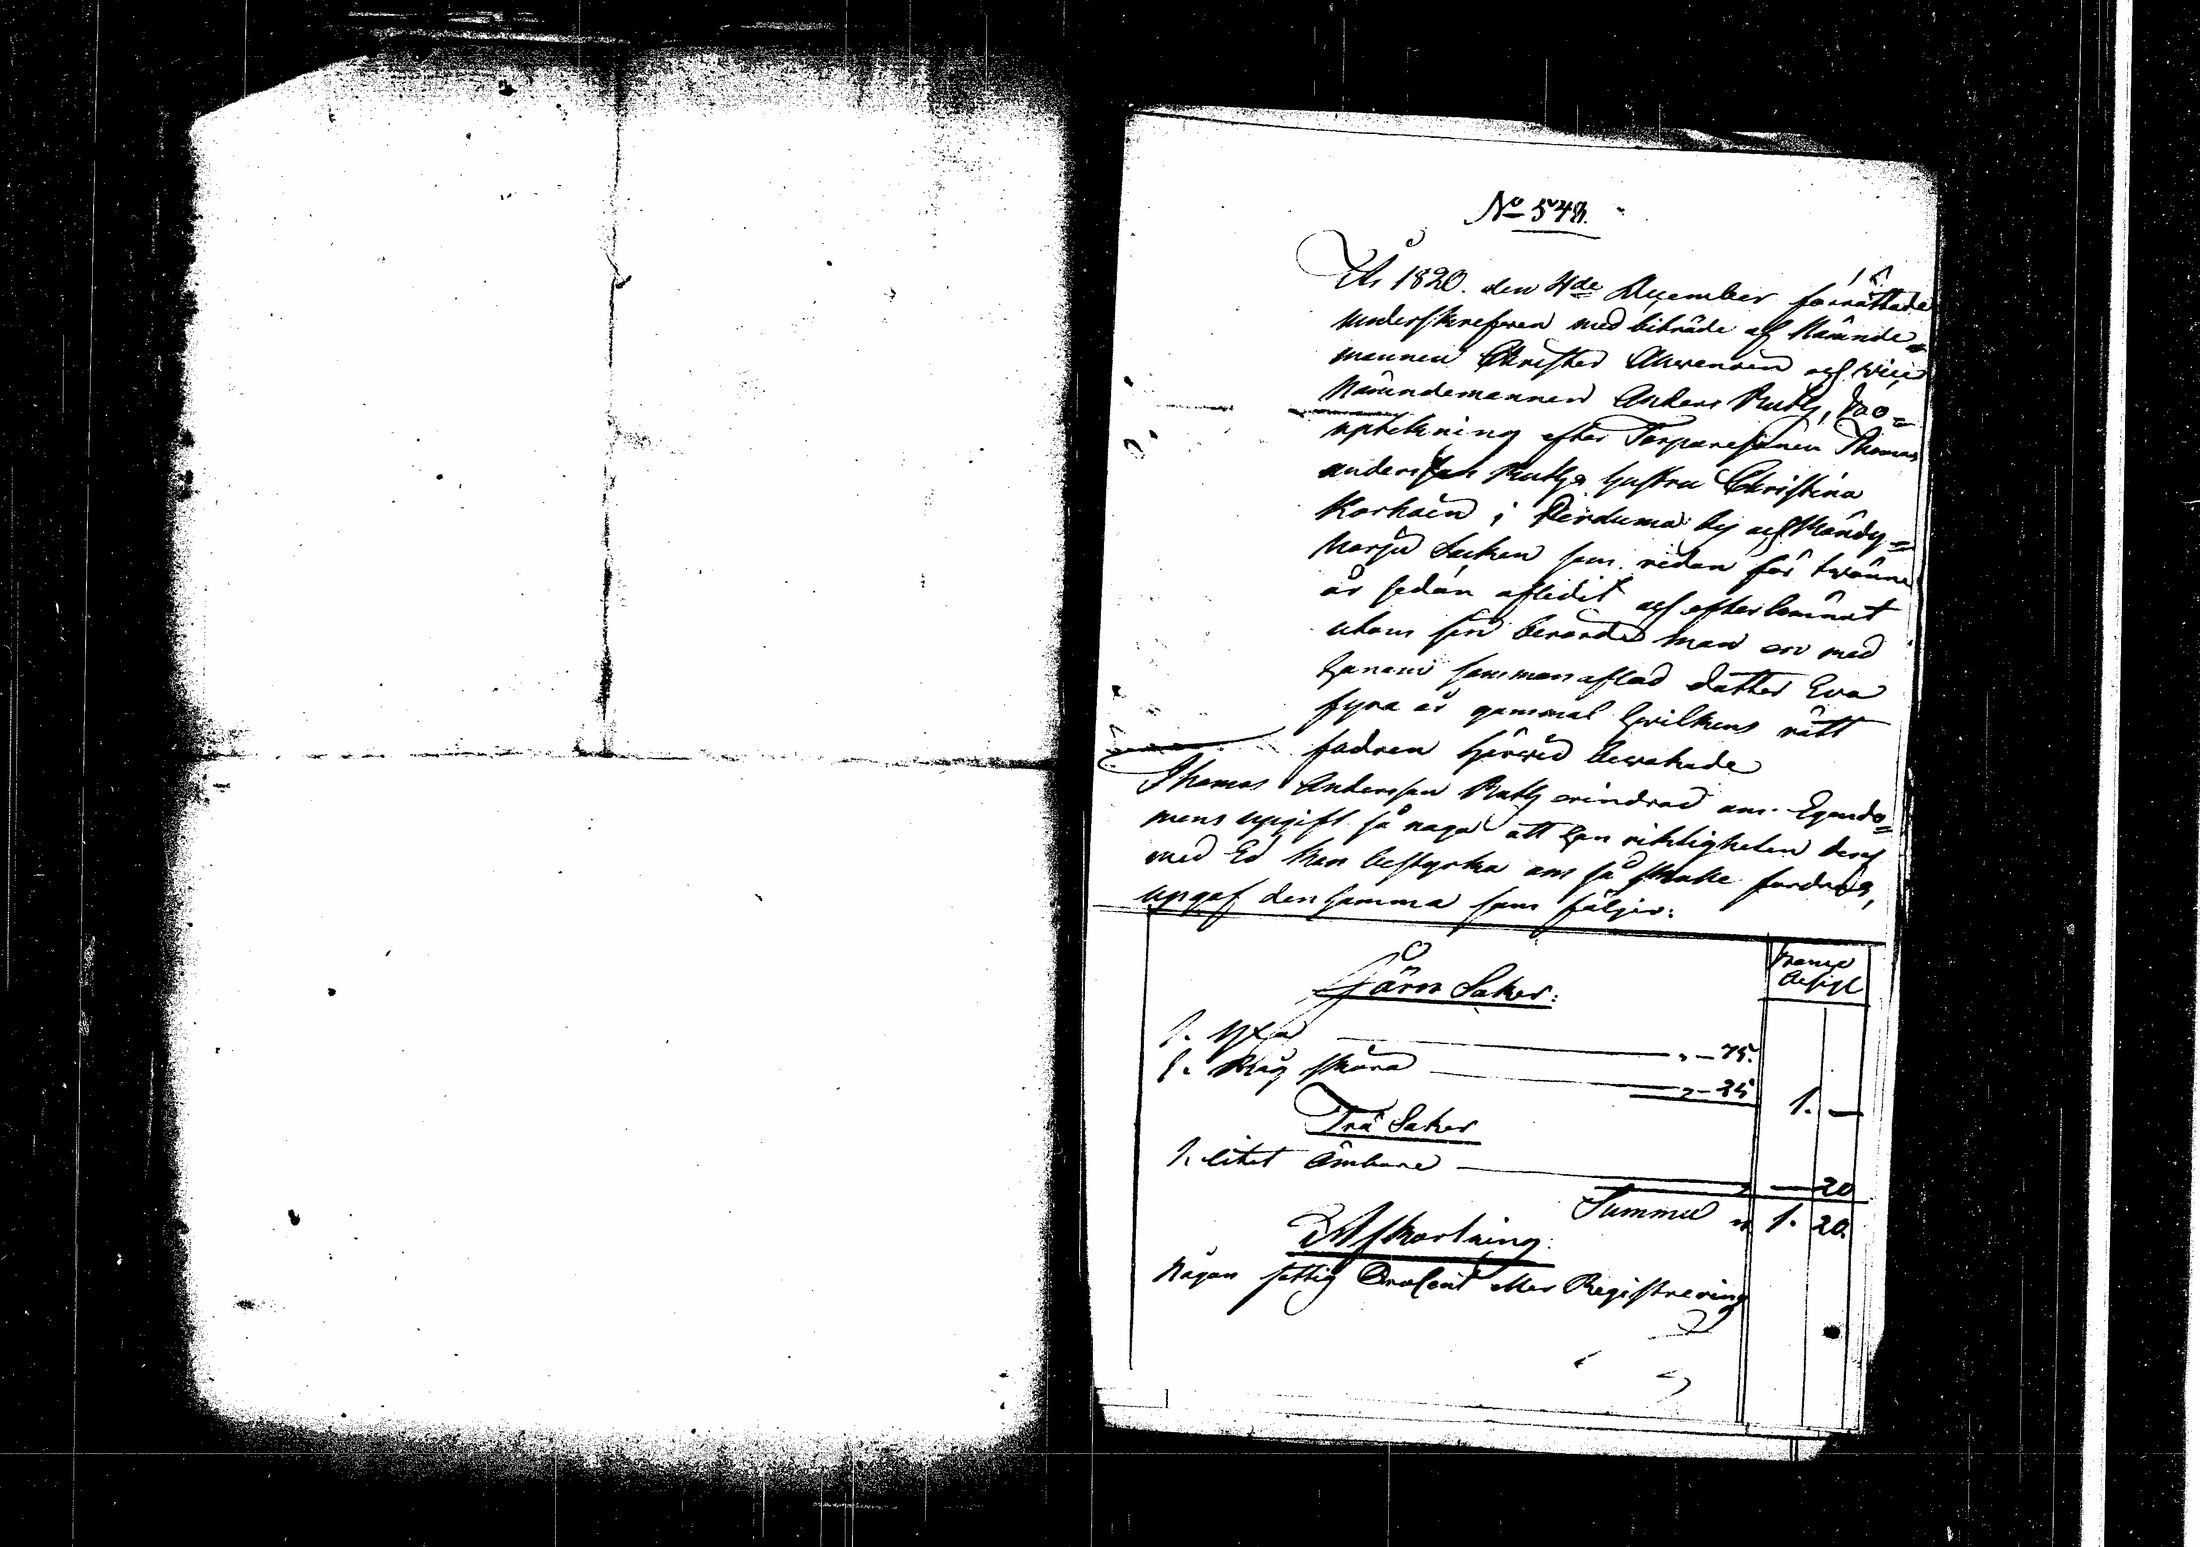 No 548.
År 1820. den 4de December förrättade
underskrefven med biträde af Nämnde=
mannen Christer och vice
Nämndemannen Anders Ruth, Boo=
uptekning efter Torparesonen Thomas
Andersson Ruths hustru Christina
Karhain i by och Mändy=
harju Socken som redan för tvänne
år sedan aflidit och efterlämnat
utom sin berörde man en med
honom sammanaflad dotter Eva
fyra år gammal hvilkens rätt
fadren härvid bevakade
Thomas Andersson Ruth erindrad om Egendo=
mens upgift så noga att han riktigheten deraf
med Ed kan bestyrka om så skulle fordras,
upgaf densamma som följer:
Banco
Assign
Järn Saker:
1. Yxa " – 75.
1. skära " – 25
1. —
Trä Saker
1. litet Ämbare — 20
Summa 1. 20.
Afkortning:
Någon fattig Procent eller Registrering